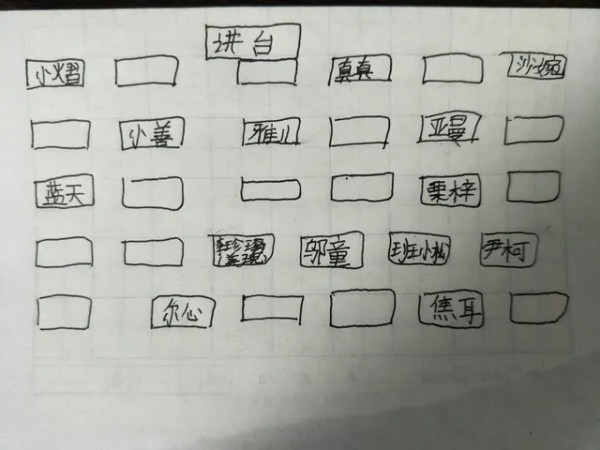 讲台
小熠 真真 沙婉
小善 雅儿 亚曼
蓝天 栗梓
邬童 班小松 尹柯
尔心 焦耳